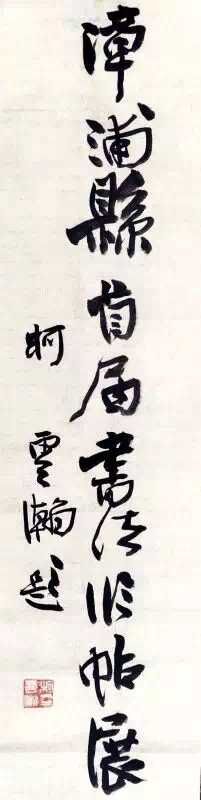 漳浦縣首届書法临帖展
柯雲瀚題